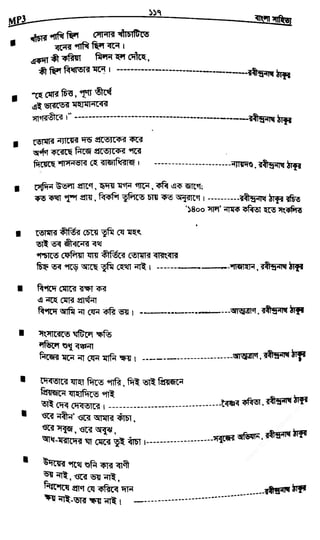 ১১৭
MP3 বাংলা সাহিত্য
খাঁচার পাখি ছিল সোনার খাঁচাটিতে
বনের পাখি ছিল বনে ।
একদা কী করিয়া মিলন হল দোঁহে,
কী ছিল বিধাতার মনে । ---------- রবীন্দ্রনাথ ঠাকুর
"হে মোর চিত্ত, পুণ্য তীর্থে
এই ভারতের মহামানবের
সাগরতীরে ।" ---------- রবীন্দ্রনাথ ঠাকুর
তোমার ন্যায়ের দণ্ড প্রত্যেকের করে
অর্পণ করেছ নিজে প্রত্যেকের পরে
দিয়েছে শাসনভার হে রাজাধিরাজ । ---------- ন্যায়দণ্ড, রবীন্দ্রনাথ ঠাকুর
সেদিন উতলা প্রাণে, হৃদয় মগন গানে, কবি এক জাগে;
কত কথা পুষ্প প্রায়, বিকশি তুলিতে চায় কত অনুরাগে । ---------- রবীন্দ্রনাথ ঠাকুর রচিত
'১৪০০ সাল' নামক কবিতা হতে সংকলিত
তোমার কীর্তির চেয়ে তুমি যে মহৎ
তাই তব জীবনের রথ
পশ্চাতে ফেলিয়া যায় কীর্তিরে তোমার বারংবার
চিহ্ন তব পড়ে আছে তুমি হেথা নাই । ---------- শাজাহান, রবীন্দ্রনাথ ঠাকুর
বিপদে মোরে রক্ষা কর
এ নহে মোর প্রার্থনা
বিপদে আমি না যেন করি ভয় । ---------- আত্মত্রাণ, রবীন্দ্রনাথ ঠাকুর
সংসারেতে ঘটিলে ক্ষতি
লভিলে শুধু বঞ্চনা
নিজের মনে না যেন মানি ক্ষয় । ---------- আত্মত্রাণ, রবীন্দ্রনাথ ঠাকুর
দেবতারে যাহা দিতে পারি, দিই তাই প্রিয়জনে
প্রিয়জনে যাহাদিতে পাই
তাই দেব দেবতারে । ---------- বৈষ্ণব কবিতা, রবীন্দ্রনাথ ঠাকুর
ওরে নবীন ওরে আমার কাঁচা,
ওরে সবুজ, ওরে অবুঝ,
আধ-মরাদের ঘা মেরে তুই বাঁচা ।---------- সবুজের অভিযান, রবীন্দ্রনাথ ঠাকুর
উদয়ের পথে শুনি কার বাণী
ভয় নাই, ওরে ভয় নাই,
নিঃশেষে প্রাণ যে করিবে দান
ক্ষয় নাই-তার ক্ষয় নাই । ---------- রবীন্দ্রনাথ ঠাকুর